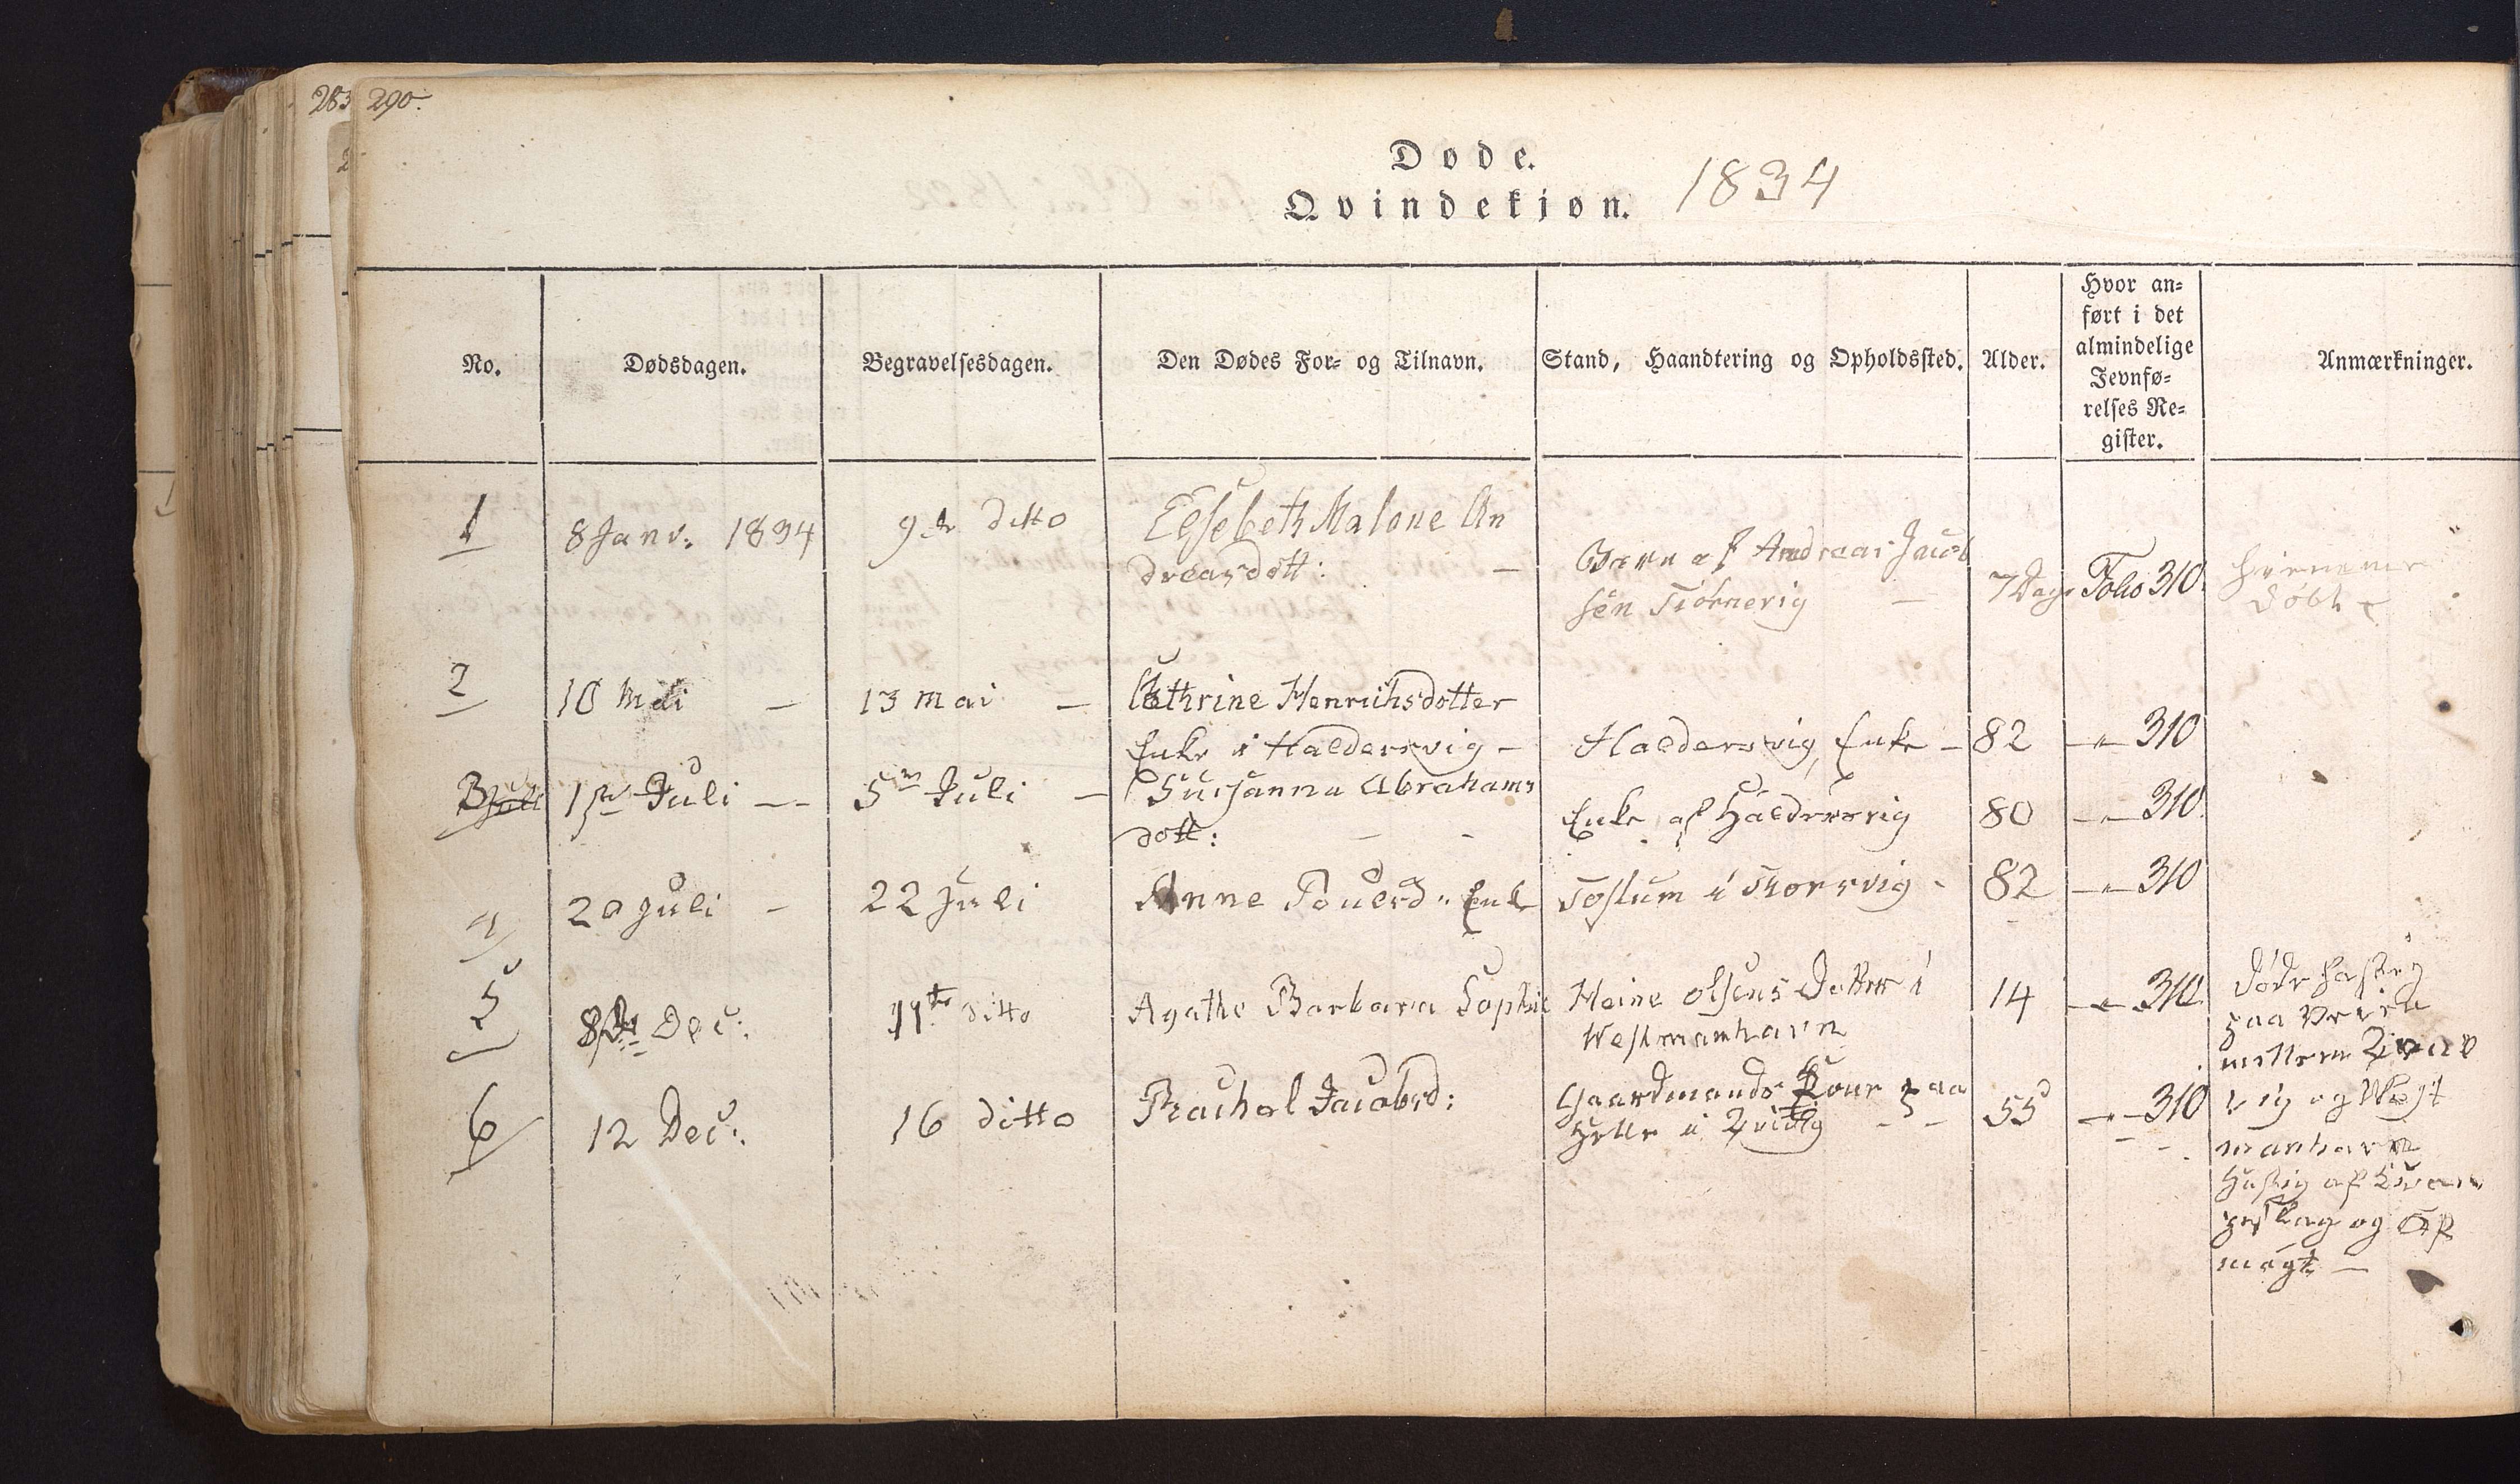 283 290.
Døde.
Qvindekjøn. 1834
No. Dødsdagen. Begravelsesdagen. Den Dødes For- og Tilnavn. Stand, Haandtering og Opholdssted. Alder. Hvor an-
ført i det
almindelige
Jevnfø-
relses Re-
gister. Anmærkninger.
1 8 Janv: 1834 9de ditto Elsebeth Malene An
dreasdott: – Barn af Andreas Jacob
sen Tiørnevig – 7 Dage Folio 310. hiemme
døbt
2 10 Mai – 13 Mai – Cathrine Henrichsdotter
Enke i Haldersvig – Haldersvig, Enke – 82 – " – 310
3 Juli 1ste Juli – – 5te Juli – Susanna Abrahams
dott: – - Enke af Haldersvig 80 – " – 310.
4 20 Juli – 22 Juli Anne Pouelsd. Enk 82 – " – 310
5 8de Dec: 11te ditto Agathe Barbara Sophie Heine Olsens Datter i
Westmanhavn 14 – " – 310 døde hastig
paa Veien
mellem
vig og West
manhavn
6 12 Dec: 16 ditto Rachel Jacobsd: Gaardmands Kone paa
i 55 – " – 310
af
og Af
magt –